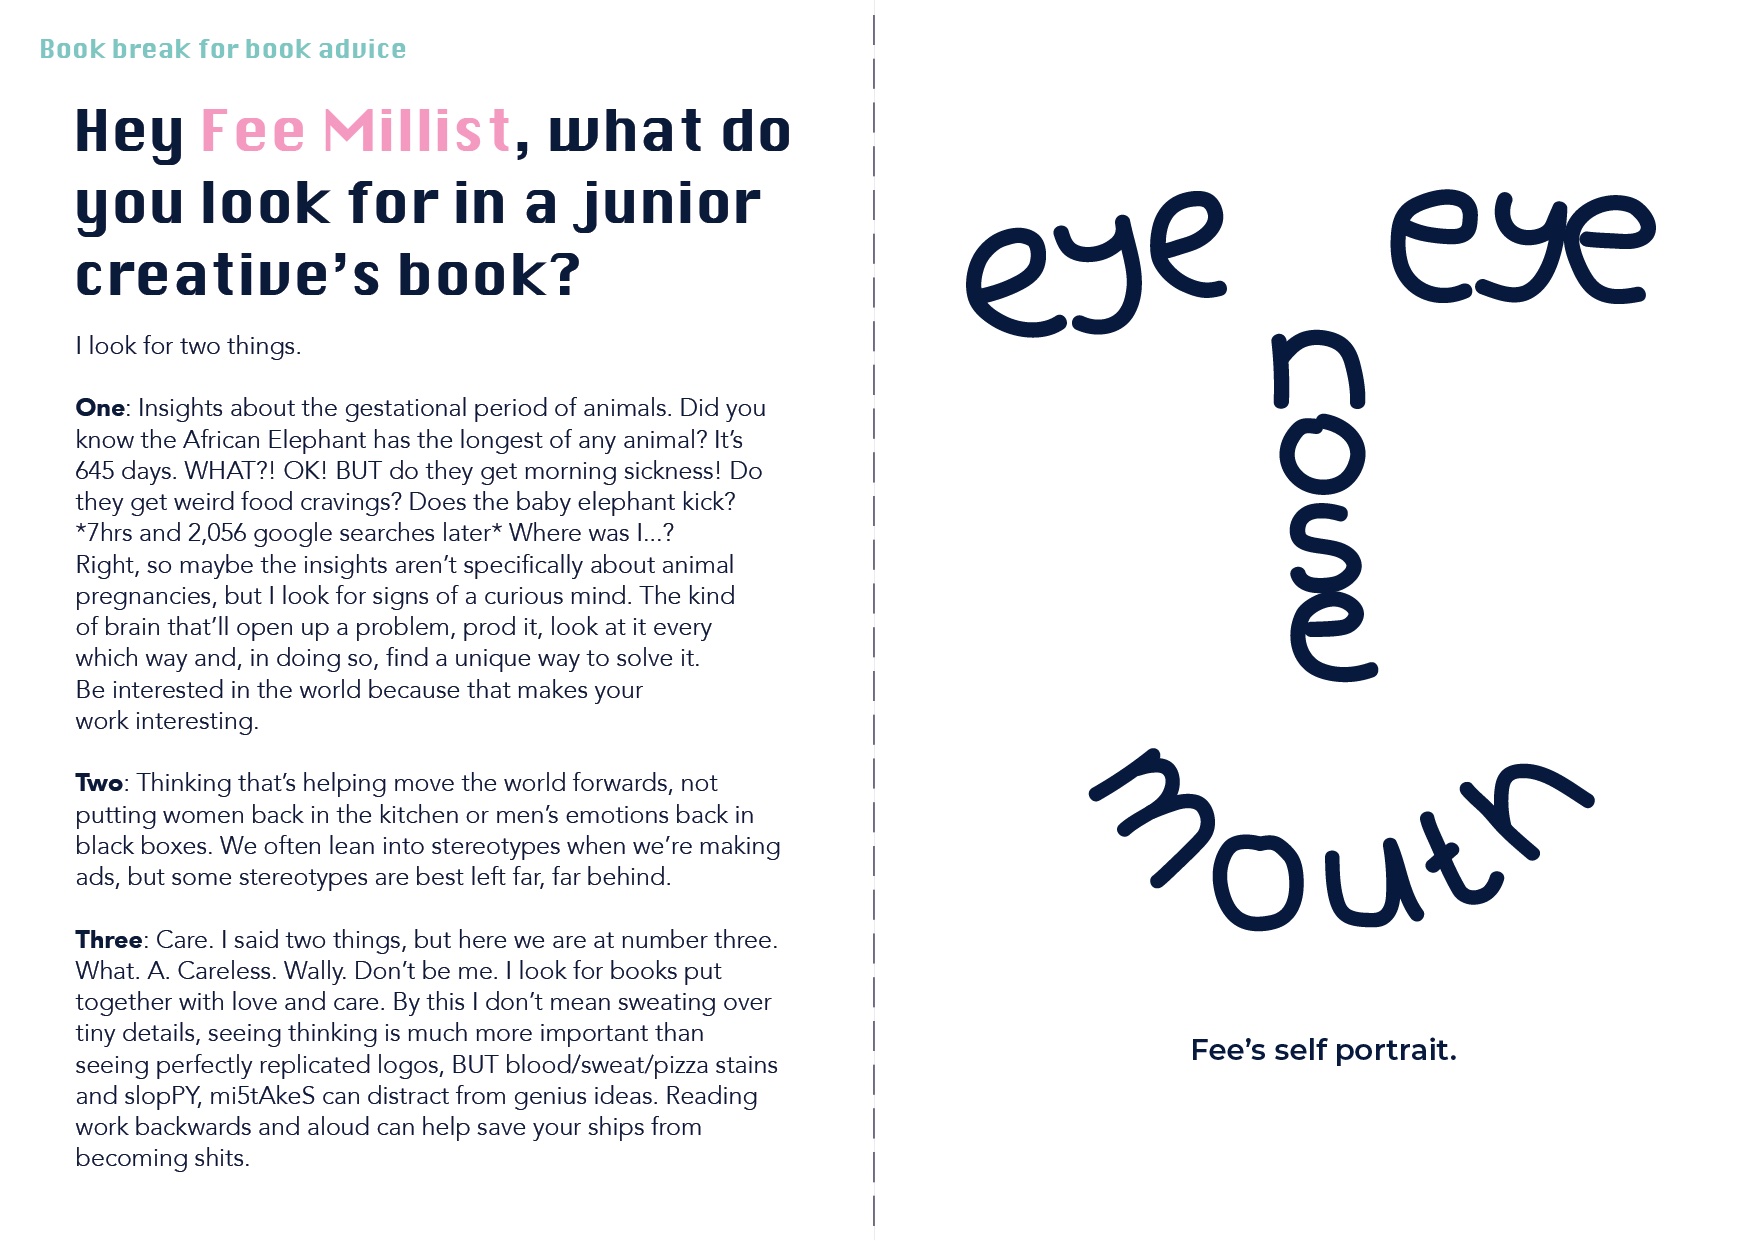 Book break for book advice
Hey Fee Millist, what do
you look for in a junior
creative’s book?
I look for two things.
One: Insights about the gestational period of animals. Did you
know the African Elephant has the longest of any animal? It’s
645 days. WHAT?! OK! BUT do they get morning sickness! Do
they get weird food cravings? Does the baby elephant kick?
*7hrs and 2,056 google searches later* Where was I...?
Right, so maybe the insights aren’t specifically about animal
pregnancies, but I look for signs of a curious mind. The kind
of brain that’ll open up a problem, prod it, look at it every
which way and, in doing so, find a unique way to solve it.
Be interested in the world because that makes your
work interesting.
Two: Thinking that’s helping move the world forwards, not
putting women back in the kitchen or men’s emotions back in
black boxes. We often lean into stereotypes when we’re making
ads, but some stereotypes are best left far, far behind.
Three: Care. I said two things, but here we are at number three.
What. A. Careless. Wally. Don’t be me. I look for books put
together with love and care. By this I don’t mean sweating over
tiny details, seeing thinking is much more important than
seeing perfectly replicated logos, BUT blood/sweat/pizza stains
and slopPY, mi5tAkeS can distract from genius ideas. Reading
work backwards and aloud can help save your ships from
becoming shits.
eye eye
nose
mouth
Fee’s self portrait.